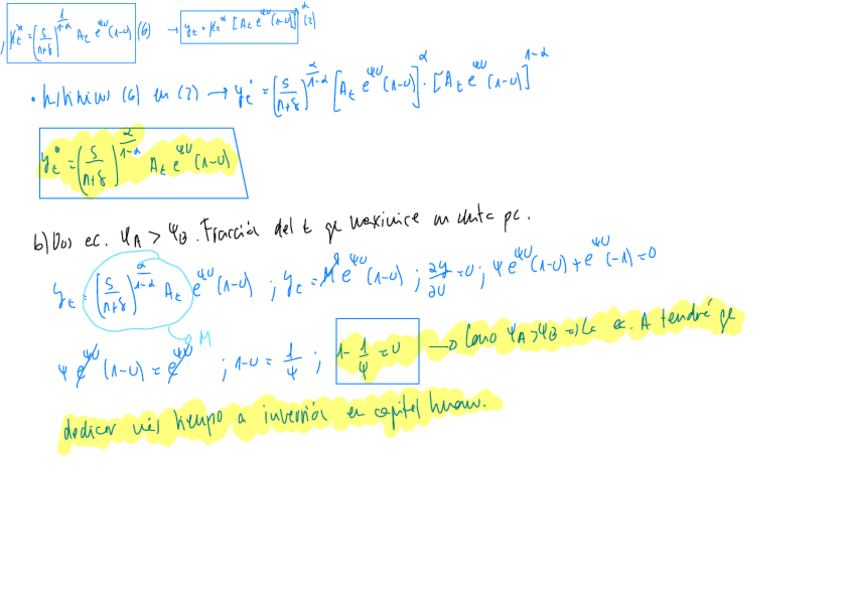 k_t* = (s/(n+δ))^(1/(1-α)) A_t e^(ψu) (1-u) (6) → y_t = k_t^α [A_t e^(ψu) (1-u)]^(1-α) (2)
• (6) en (2) → y_t* = (s/(n+δ))^(α/(1-α)) [A_t e^(ψu) (1-u)]^α · [A_t e^(ψu) (1-u)]^(1-α)
y_t* = (s/(n+δ))^(α/(1-α)) A_t e^(ψu) (1-u)
b) Dos ec. ψ_A > ψ_B. Fracción del t qe maximice en renta pc.
y_t = (s/(n+δ))^(α/(1-α)) A_t e^(ψu) (1-u) ; y_t = M e^(ψu) (1-u) ; ∂y/∂u = 0 ; ψ e^(ψu) (1-u) + e^(ψu) (-1) = 0
M
ψ e^(ψu) (1-u) = e^(ψu) ; 1-u = 1/ψ ; 1 - 1/ψ = u → Como ψ_A > ψ_B => La ec. A tendrá qe
dedicar más tiempo a inversión en capital humano.